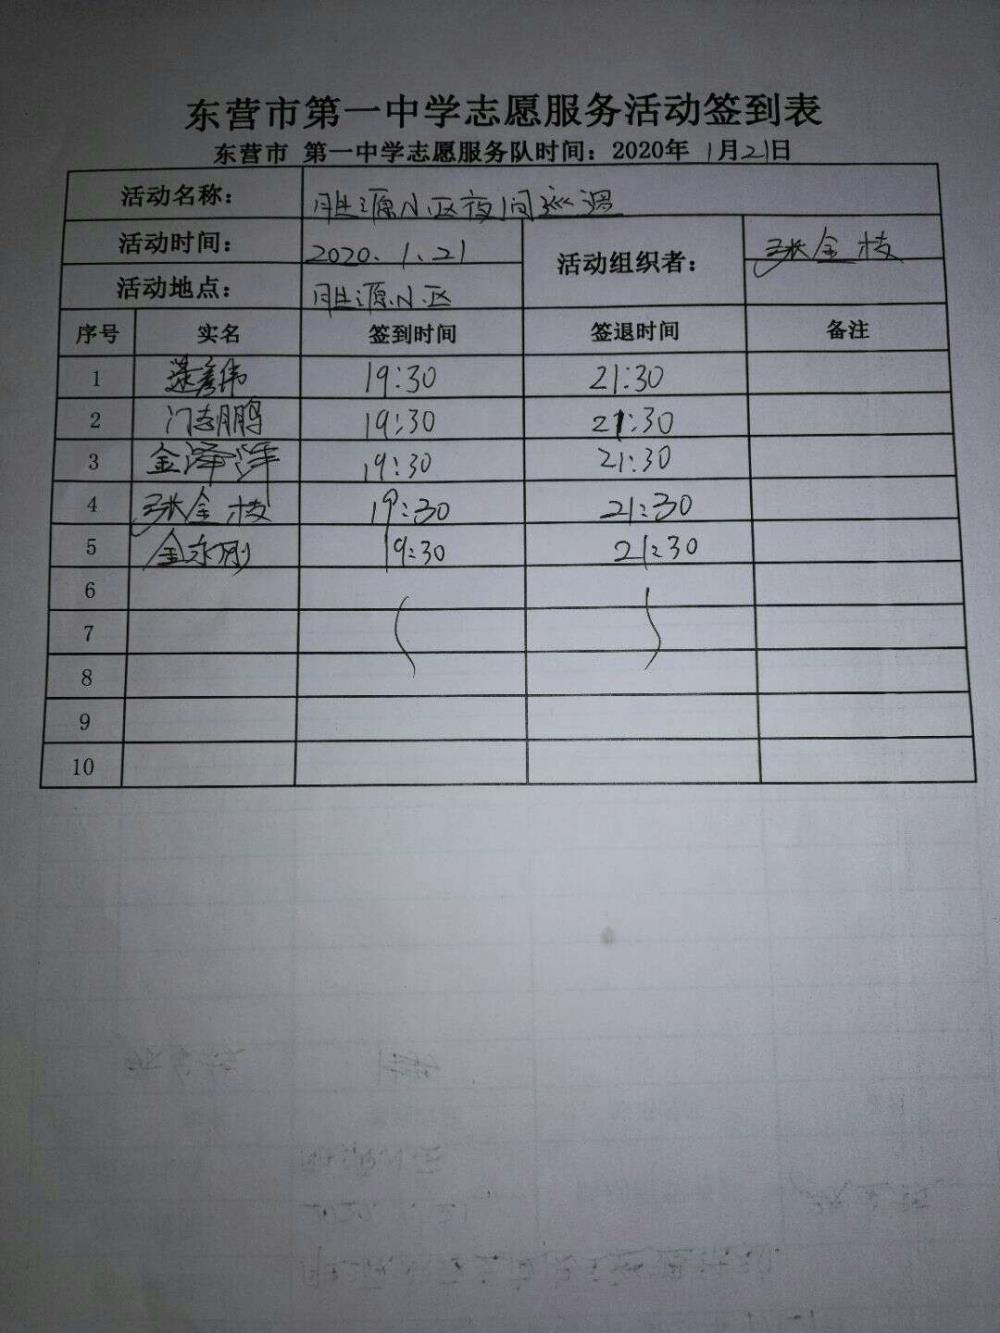 东营市第一中学志愿服务活动签到表
东营市 第一中学志愿服务队时间：2020年 1月21日
活动名称： 胜源小区夜间巡逻
活动时间： 2020.1.21 活动组织者： 张金枝
活动地点： 胜源小区
序号 实名 签到时间 签退时间 备注
1 彦伟 19:30 21:30
2 门志鹏 19:30 21:30
3 金泽洋 19:30 21:30
4 张金枝 19:30 21:30
5 金永刚 19:30 21:30
6
7
8
9
10